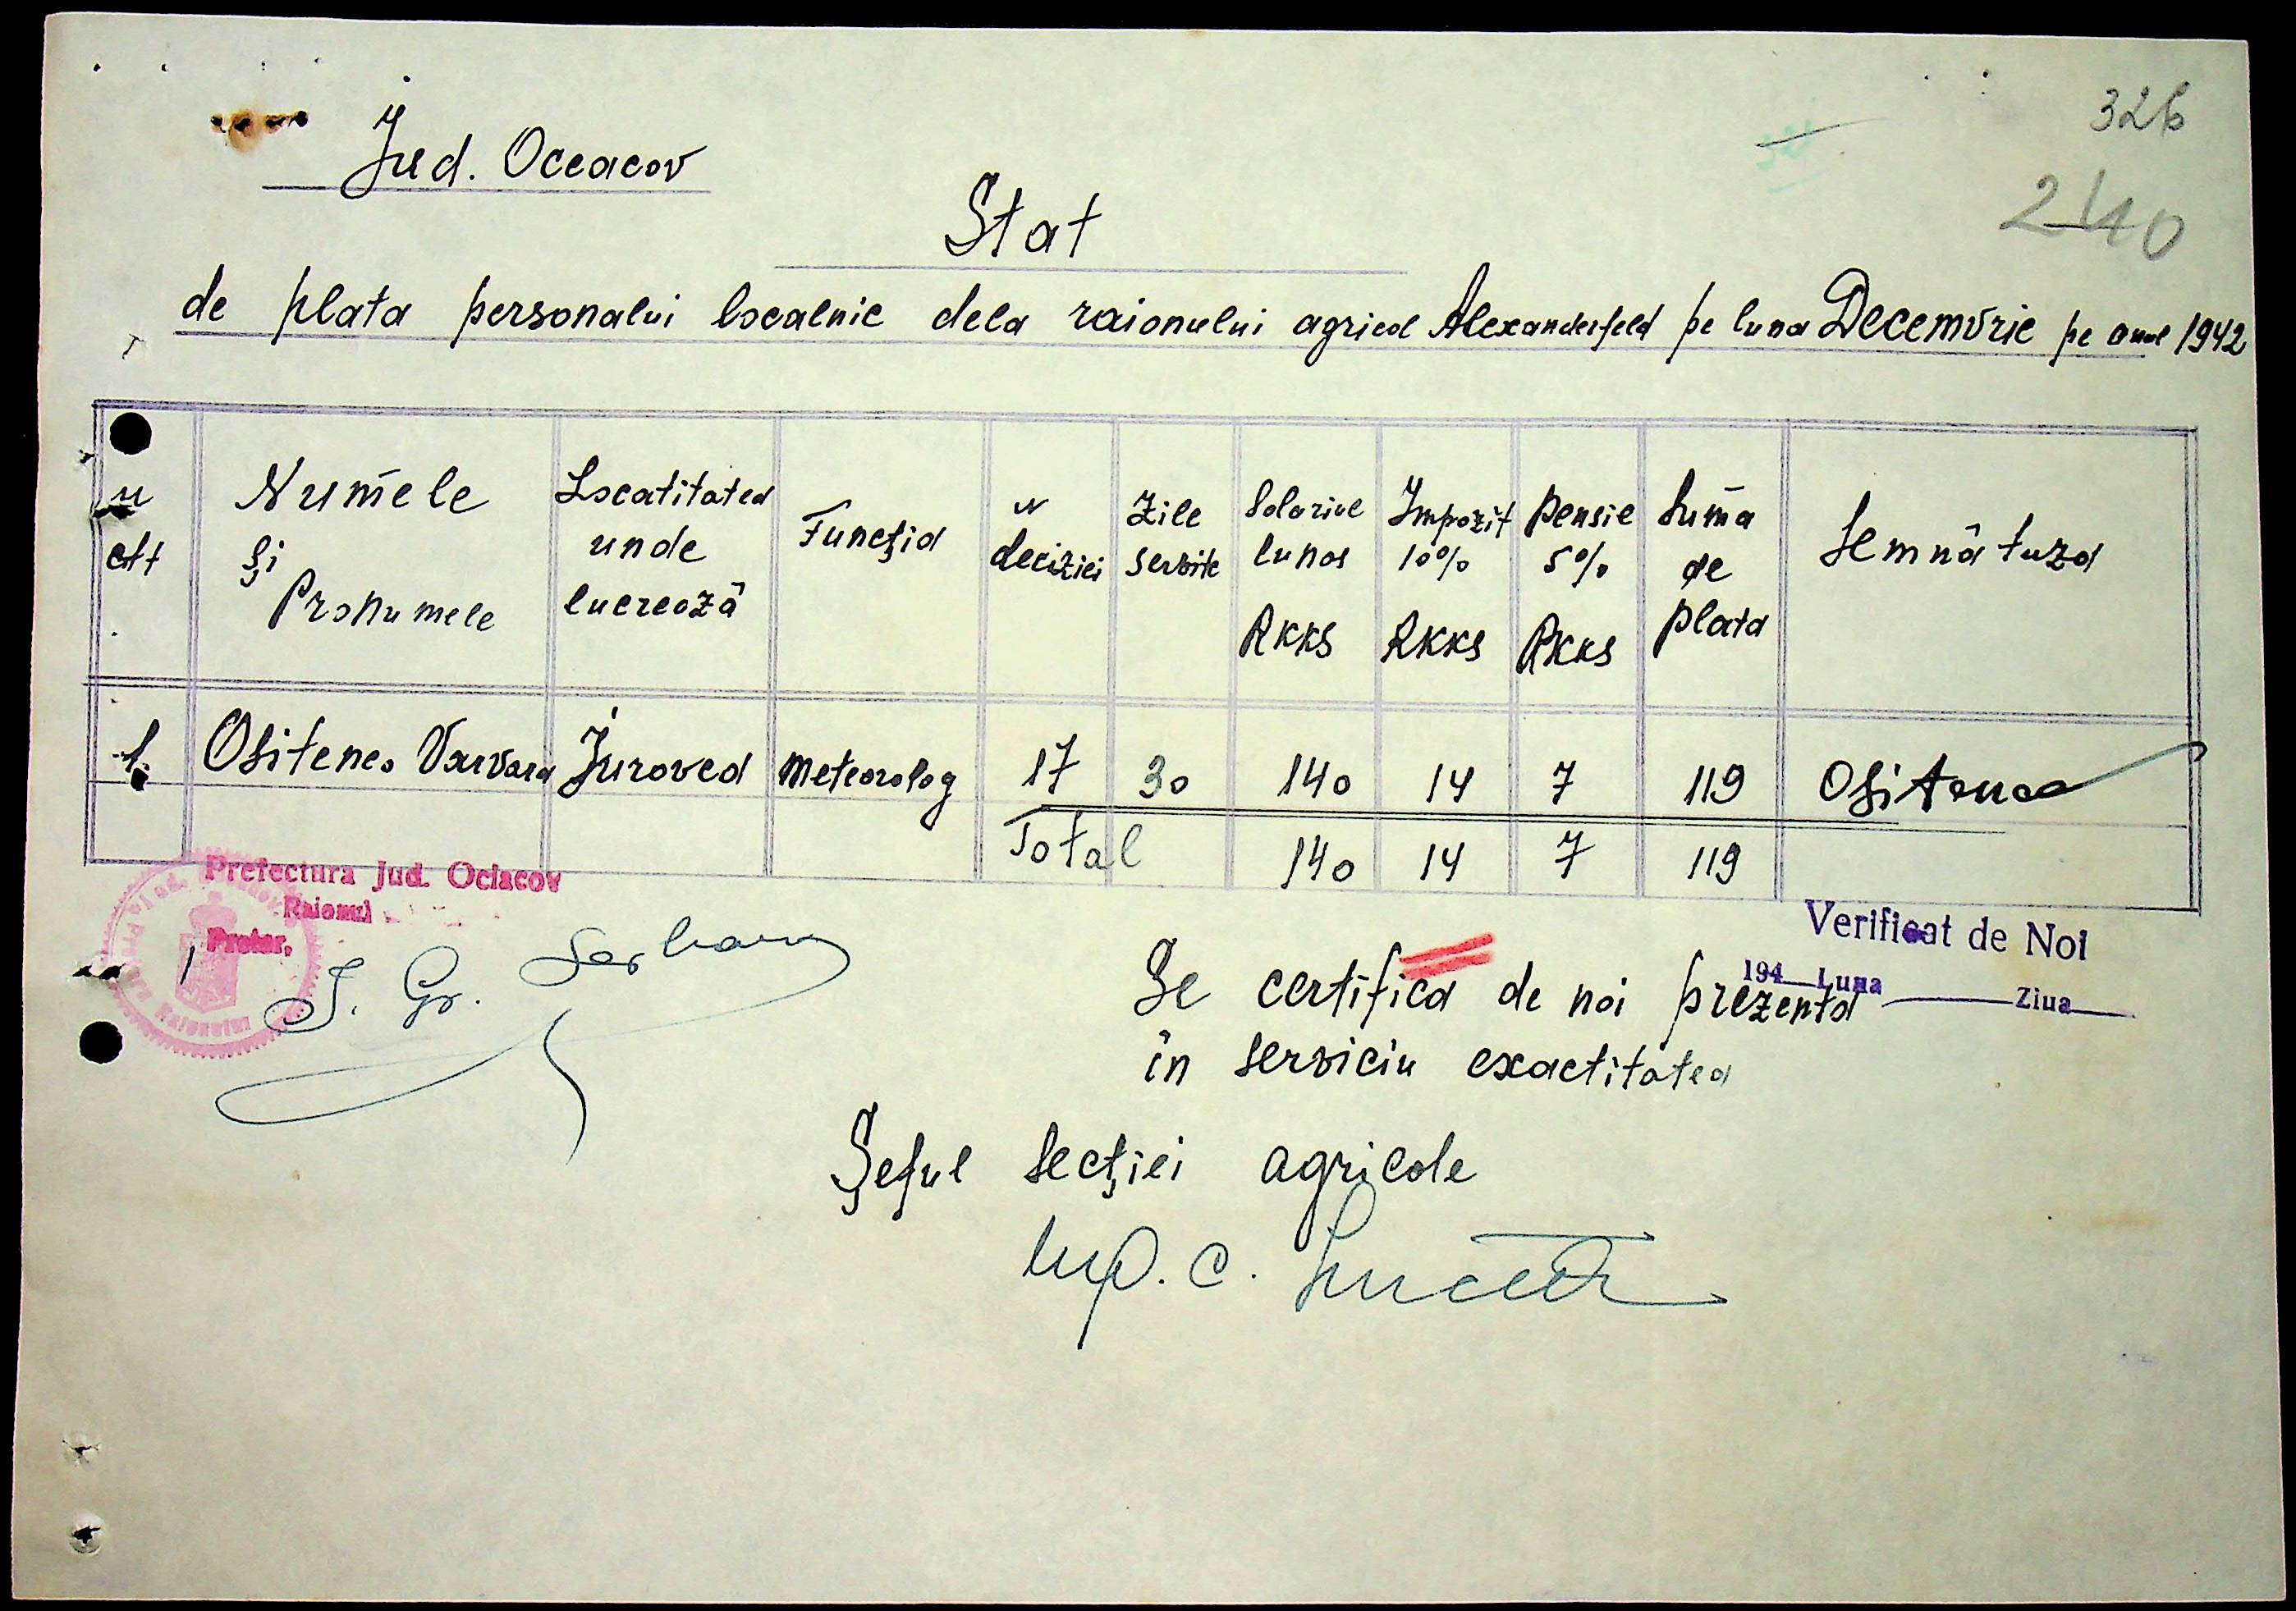 326
Jud. Oceacov
240
Stat
de plata personalui localnic dela raionului agricol Alexanderfeld pe luna Decemvrie pe anul 1942
N ctt | Numele și Pronumele | Locatitatea unde lucrează | Funcția | N deciziei | Zile servite | Salariul lunar RKKS | Impozit 10% RKKS | Pensie 5% RKKS | Suma de plata | Semnătura
1. | Ositenco Varvara | Juroved | meteorolog | 17 | 30 | 140 | 14 | 7 | 119 | Ositenco
Total | 140 | 14 | 7 | 119
Prefectura Jud. Ociacov
Raionul
Pretor,
Verificat de Noi
194 Luna Ziua
Se certifica de noi prezenta
în serviciu exactitatea
Șeful secției agricole